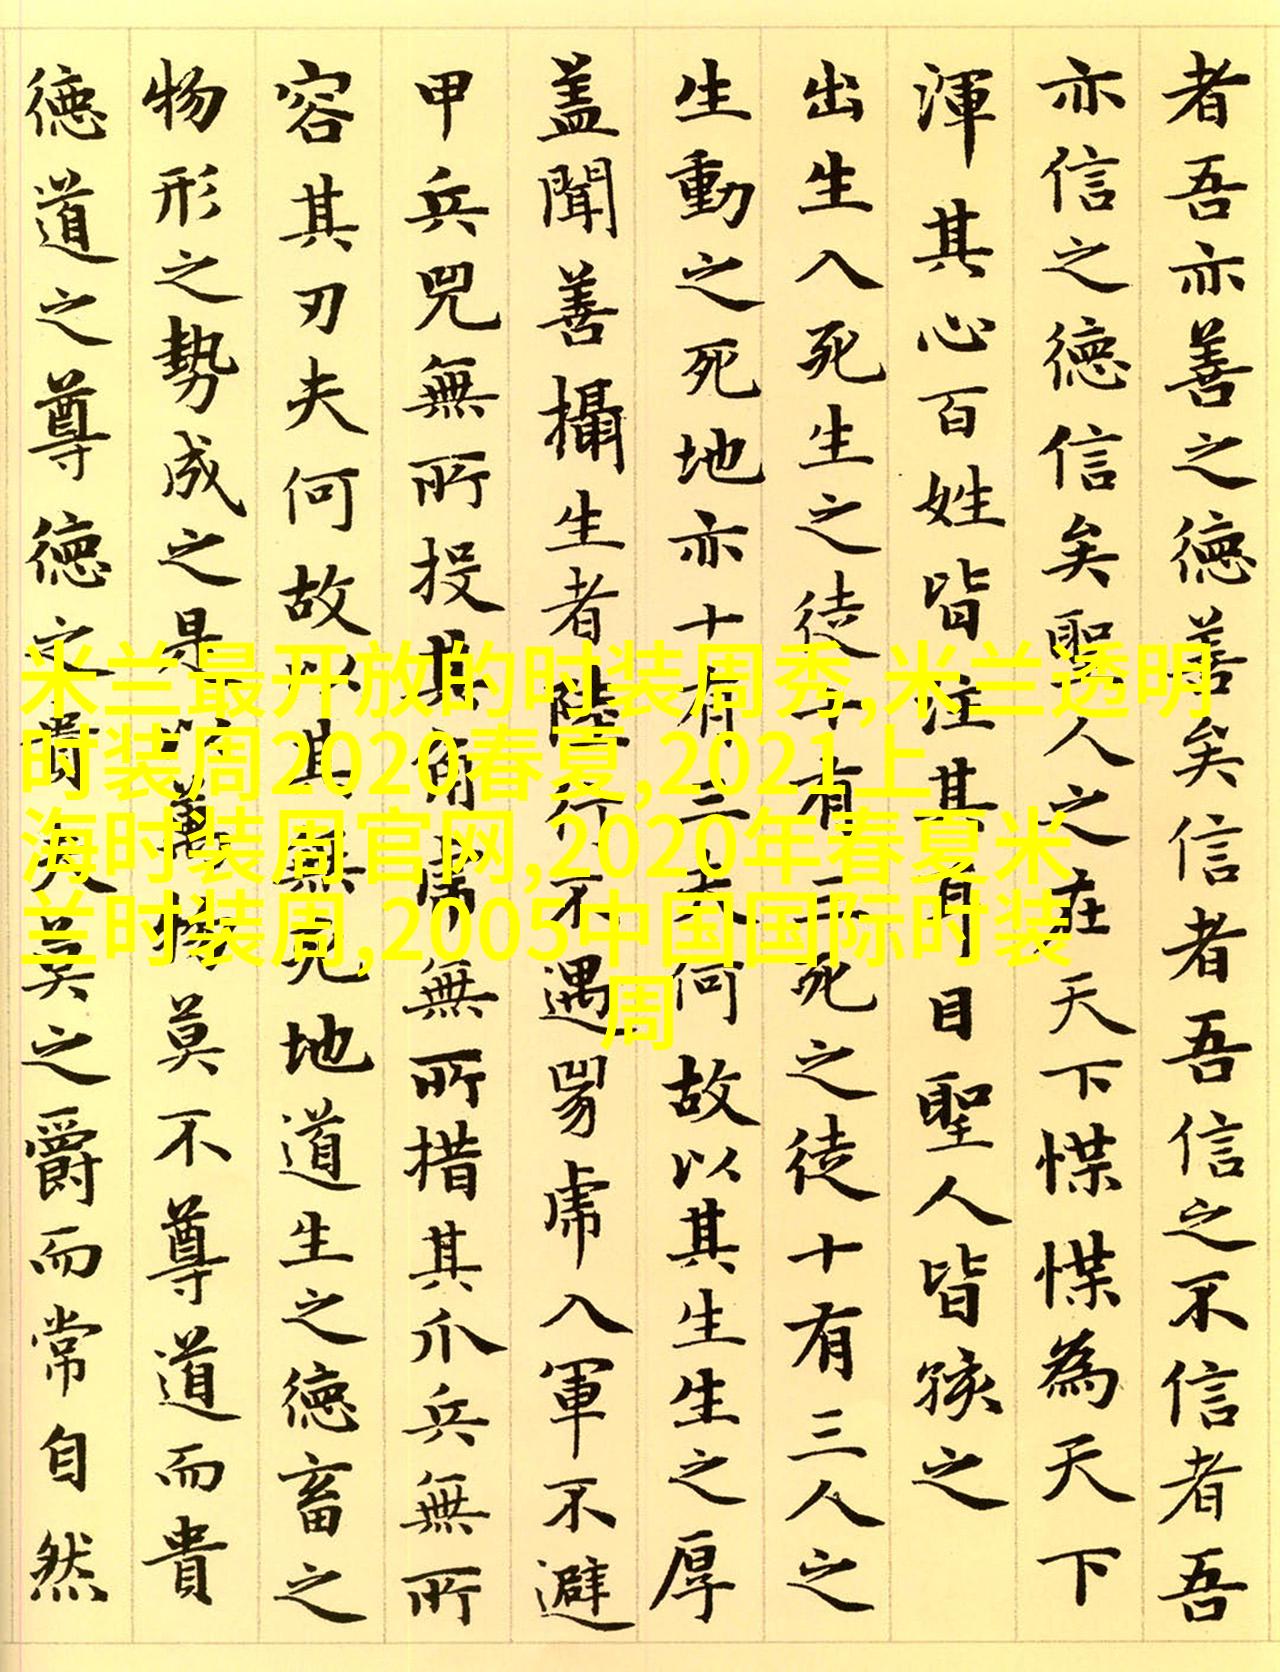 者吾亦善之德善矣信者吾信之不信者吾
亦信之德信矣聖人之在天下惵惵為天下
渾其心百姓皆注其耳目聖人皆孩之
出生入死生之徒十有三死之徒十有三人之
生動之死地亦十有三夫何故以其生生之厚
蓋聞善攝生者陸行不遇兕虎入軍不避
甲兵兕無所投其角虎無所措其爪兵無所
容其刃夫何故以其無死地道生之德畜之
物形之勢成之是以萬物莫不尊道而貴
德道之尊德之爵夫莫之爵而常自然
米兰最开放的时装周秀,米兰透明
时装周2020春夏,2021上
海时装周官网,2020年春夏米
兰时装周,2005中国国际时装
周